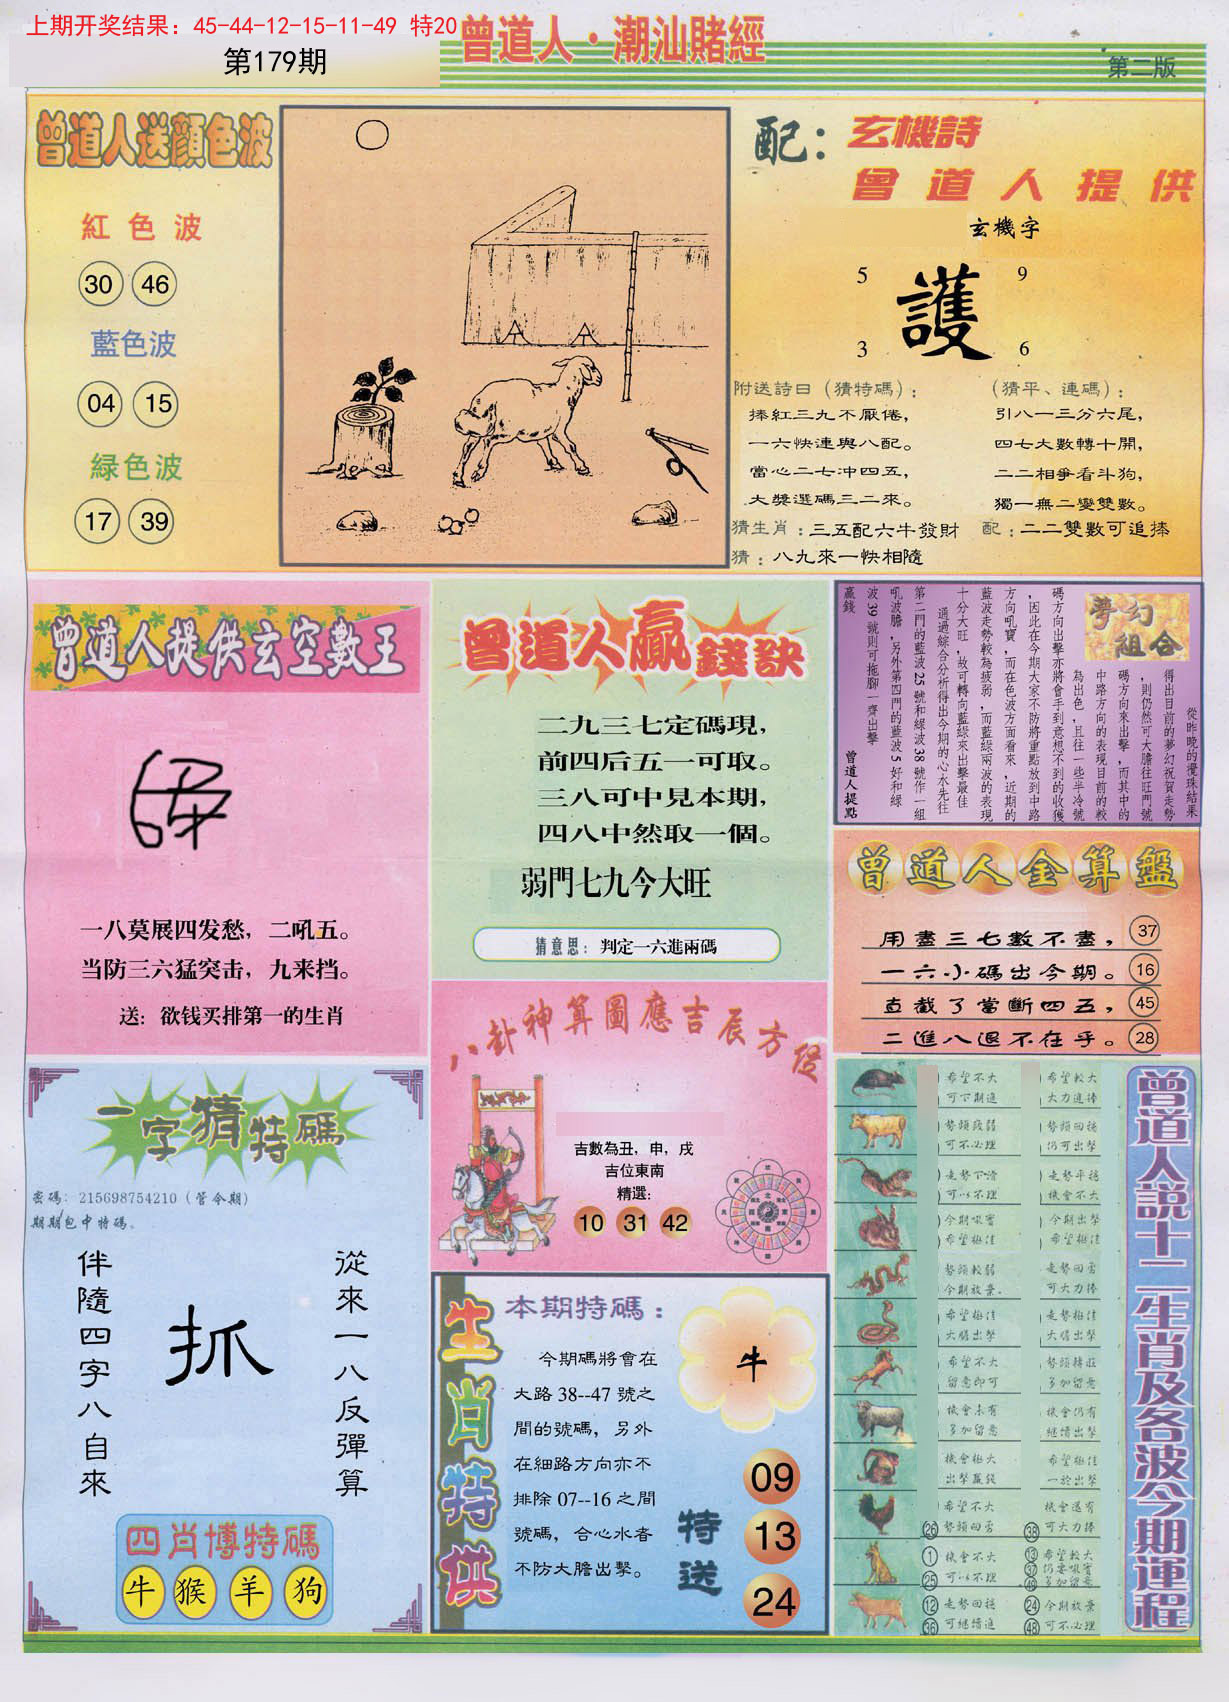 上期开奖结果：45-44-12-15-11-49 特20
第179期
曾道人·潮汕賭經
第二版
曾道人送顏色波
紅色波
30 46
藍色波
04 15
緑色波
17 39
配：玄機詩
曾道人提供
玄機字
5 9
護
3 6
附送詩曰（猜特碼）：
捧紅三九不厭倦，
一六快連與八配。
當心二七冲四五，
大獎選碼三二來。
猜生肖：三五配六牛發財
猜：八九來一快相隨
（猜平、連碼）：
引八一三分六尾，
四七大數轉十開，
二二相爭看斗狗，
獨一無二變雙數。
配：二二雙數可追捧
曾道人提供玄空數王
一八莫展四发愁，二吼五。
当防三六猛突击，九来挡。
送：欲钱买排第一的生肖
曾道人贏錢訣
二九三七定碼現，
前四后五一可取。
三八可中見本期，
四八中然取一個。
弱門七九今大旺
猜意思：判定一六進兩碼
夢幻組合
從昨晚的攪珠結果
得出目前的夢幻祝賀走勢
，則仍然可大膽往旺門號
碼方向來出擊，而其中的
中路方向的表現目前的較
為出色，且往一些半冷號
碼方向出擊亦將會手到意想不到的收獲
，因此在今期大家不防將重點放到中路
方向吼寶，而在色波方面看來，近期的
藍波走勢較為疲弱，而藍綠兩波的表現
十分大旺，故可轉向藍綠來出擊最佳
通過綜合分析得出今期的心水先往
第二門的藍波25號和綠波38號作一組
吼波膽，另外第四門的藍波5好和綠
波39號則可拖腳一齊出擊
贏錢
曾道人提點
曾道人金算盤
用盡三七數不盡， 37
一六小碼出今期。 16
直截了當斷四五， 45
二進八退不在乎。 28
八卦神算圖應吉辰方位
吉數為丑，申，戌
吉位東南
精選：
10 31 42
一字猜特碼
密碼：215698754210（管令期）
期期包中特碼。
從來一八反彈算
抓
伴隨四字八自來
四肖博特碼
牛 猴 羊 狗
生肖特供
本期特碼：
今期碼將會在
大路38--47號之
間的號碼，另外
在細路方向亦不
排除07--16之間
號碼，合心水者
不防大膽出擊。
牛
特送
09
13
24
曾道人説十二生肖及各波今期運程
希望不大 希望較大
可下期進 大力進捧
勢頭疲弱 勢頭回穩
可不必理 仍可出擊
走勢下滑 走勢平穩
可以不理 機會不大
今期吸寶 今期出擊
希望極佳 希望極佳
勢頭較弱 走勢回勇
今期放棄。 可大力捧
希望極佳 走勢極佳
大膽出擊 大膽出擊
希望不大 勢頭轉旺
留意即可 多加留意
機會未有 機會仍有
多加留意 繼續出擊
機會極大 希望極佳
出擊贏錢 一於出擊
希望不大 機會還有
26 勢頭回勇 38 可大力捧
1 機會不大 13 希望較大
37 仍要吸寶
25 可以不理 49 多加留意
12 走勢回穩 24 今期放棄
36 可繼續進 48 可不必理